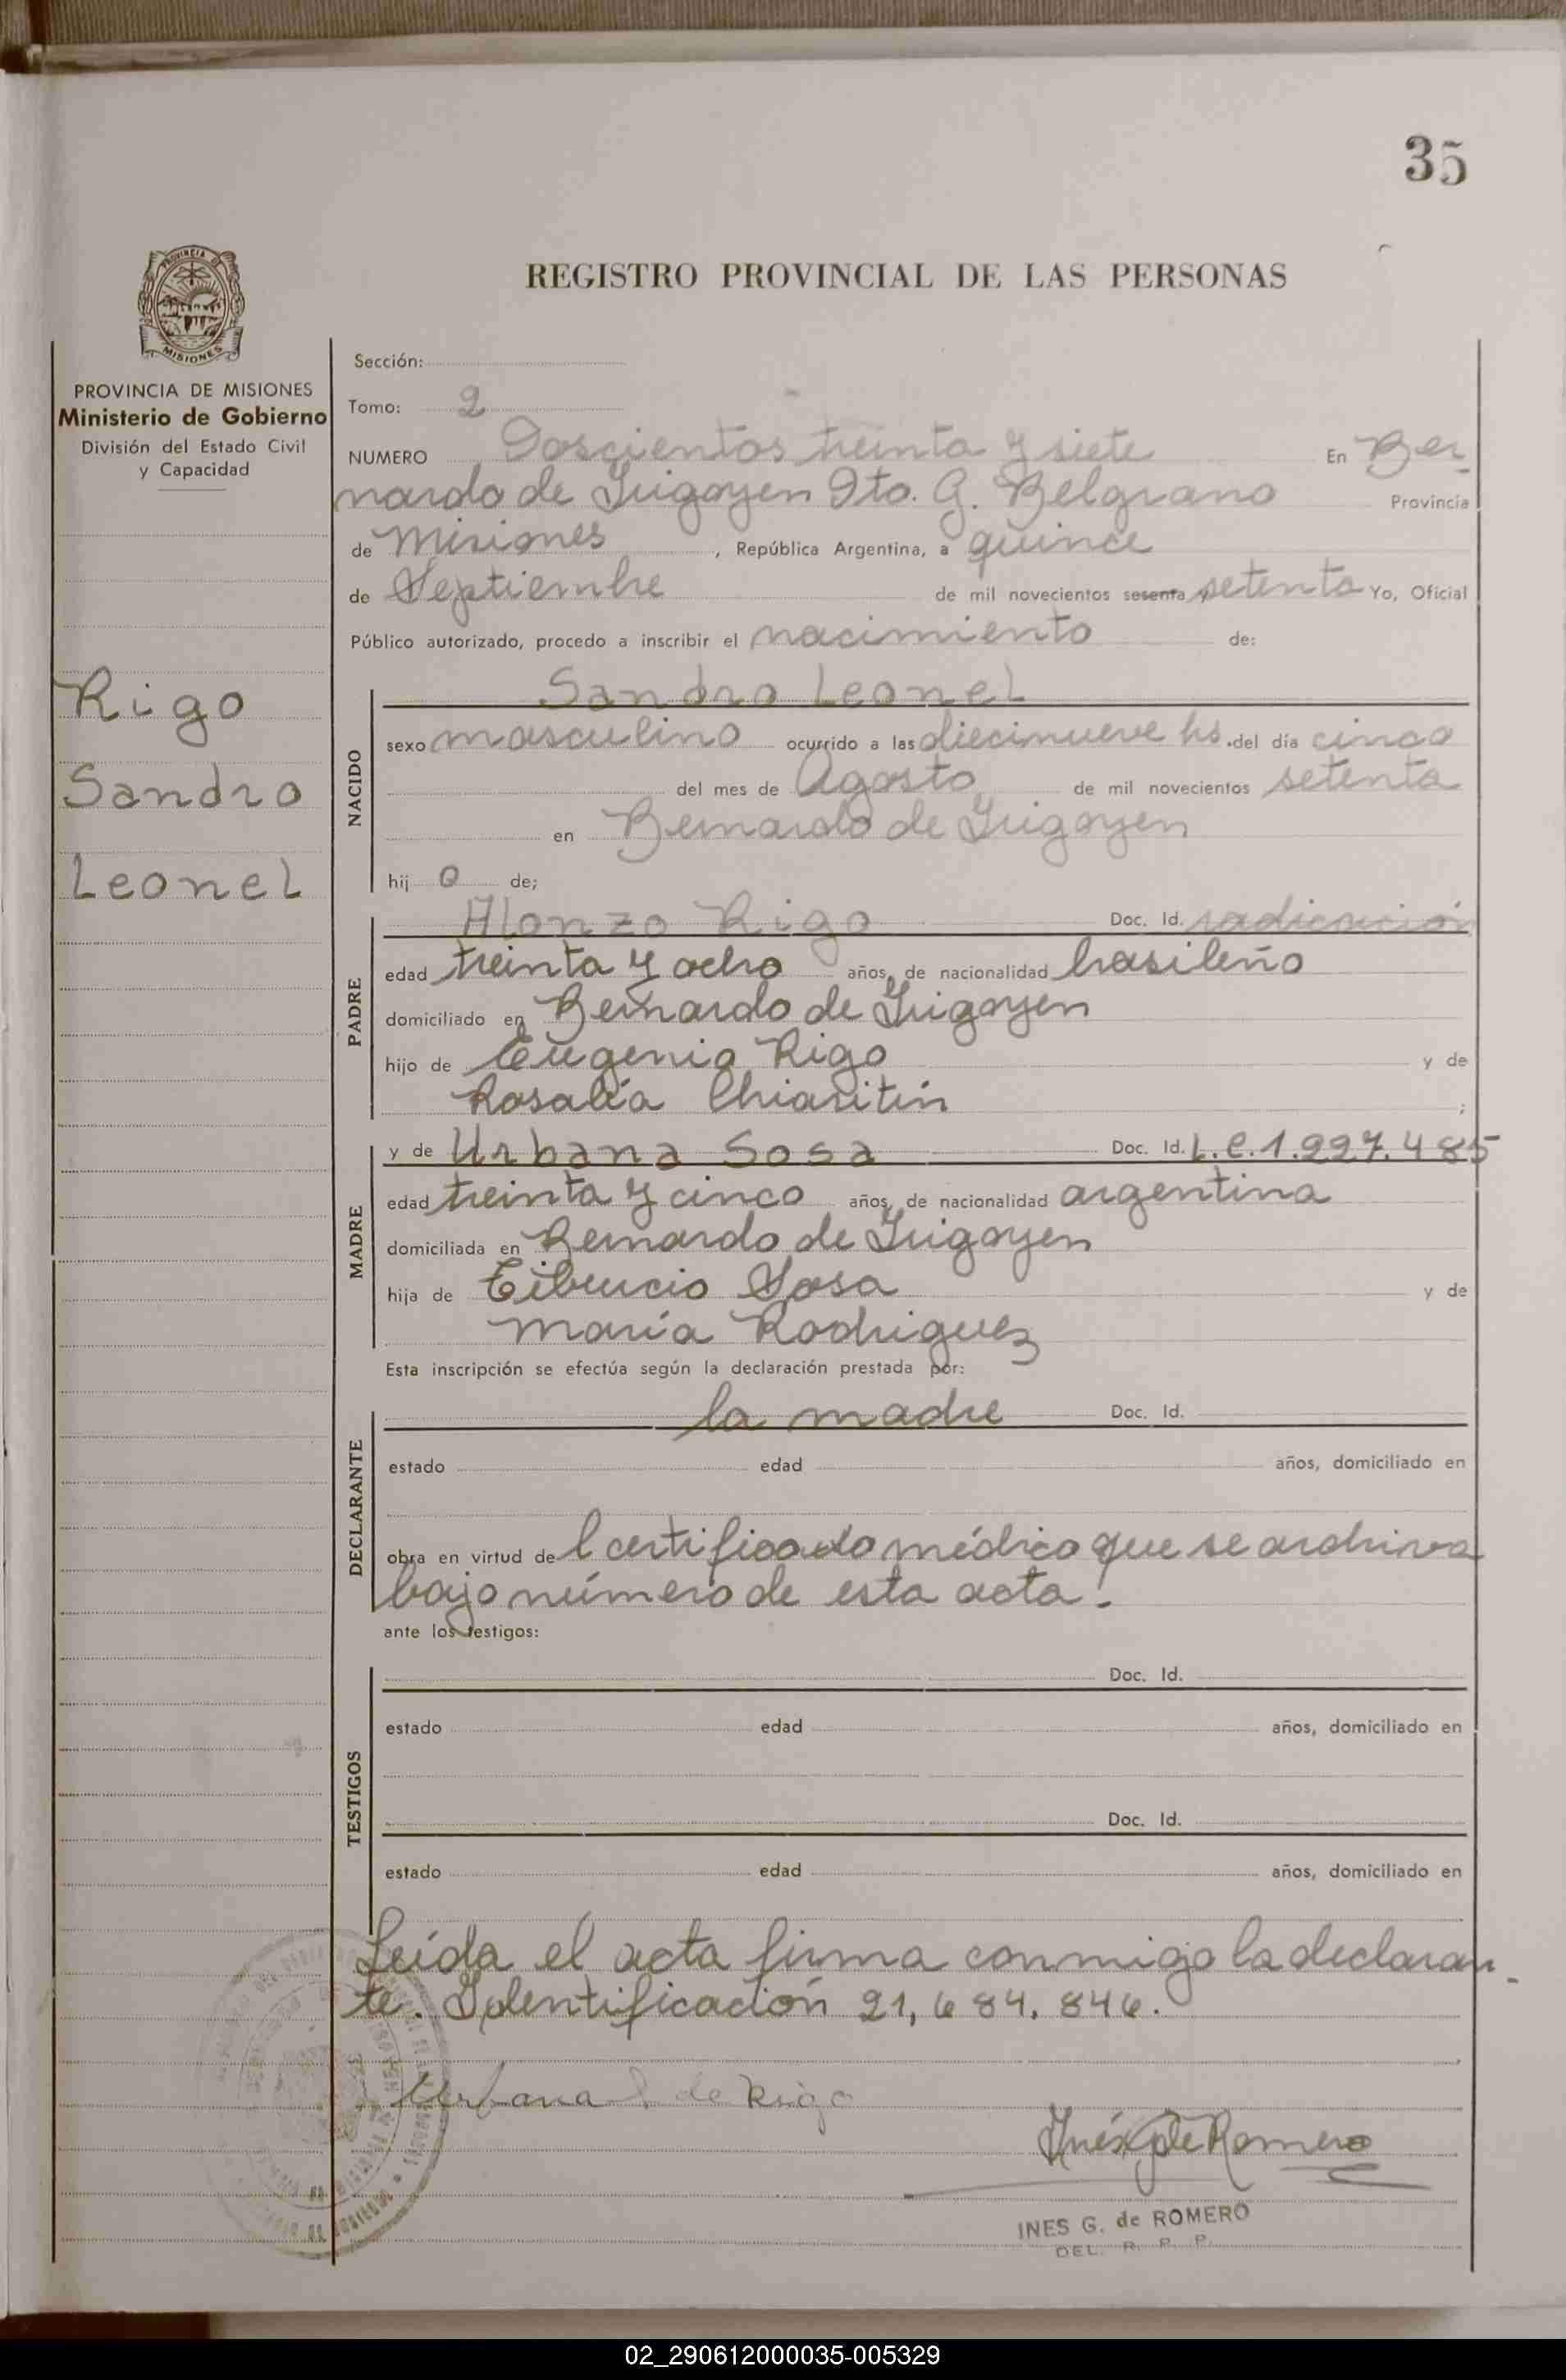 35
PROVINCIA DE
MISIONES
REGISTRO PROVINCIAL DE LAS PERSONAS
PROVINCIA DE MISIONES
Ministerio de Gobierno
División del Estado Civil
y Capacidad
Rigo
Sandro
Leonel
Sección:
Tomo: 2
NUMERO Doscientos treinta y siete En Ber
nardo de Irigoyen Dto. G. Belgrano Provincia
de Misiones, República Argentina, a quince
de Septiembre de mil novecientos sesenta y setenta Yo, Oficial
Público autorizado, procedo a inscribir el nacimiento de:
NACIDO
Sandro Leonel
sexo masculino ocurrido a las diecinueve hs. del día cinco
del mes de Agosto de mil novecientos setenta
en Bernardo de Irigoyen
hij o de;
PADRE
Alonzo Rigo Doc. Id. radicación
edad treinta y ocho años, de nacionalidad brasileño
domiciliado en Bernardo de Irigoyen
hijo de Eugenio Rigo y de
Rosalía Chiaritin ;
MADRE
y de Urbana Sosa Doc. Id. L.C. 1.997.485
edad treinta y cinco años, de nacionalidad argentina
domiciliada en Bernardo de Irigoyen
hija de Tiburcio Sosa y de
María Rodriguez
Esta inscripción se efectúa según la declaración prestada por:
DECLARANTE
la madre Doc. Id.
estado edad años, domiciliado en
obra en virtud de l certificado médico que se archiva
bajo número de esta acta.
ante los testigos:
TESTIGOS
Doc. Id.
estado edad años, domiciliado en
Doc. Id.
estado edad años, domiciliado en
Leída el acta firma conmigo la declaran-
te. Identificación 21,684.846.
Urbana S de Rigo
Inés G de Romero
INES G. de ROMERO
DEL. R. P. P.
02_290612000035-005329